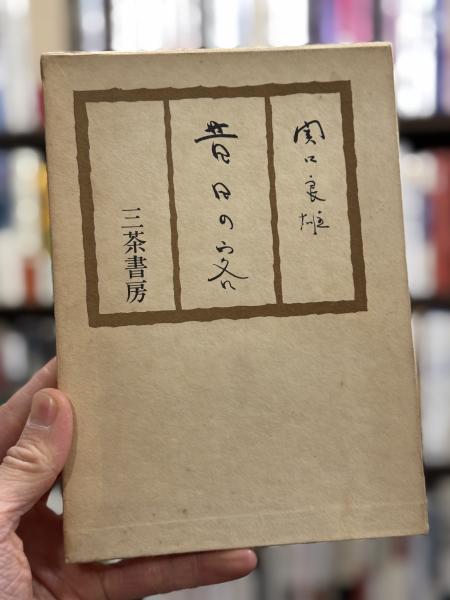 関口良雄
昔日の客
三茶書房